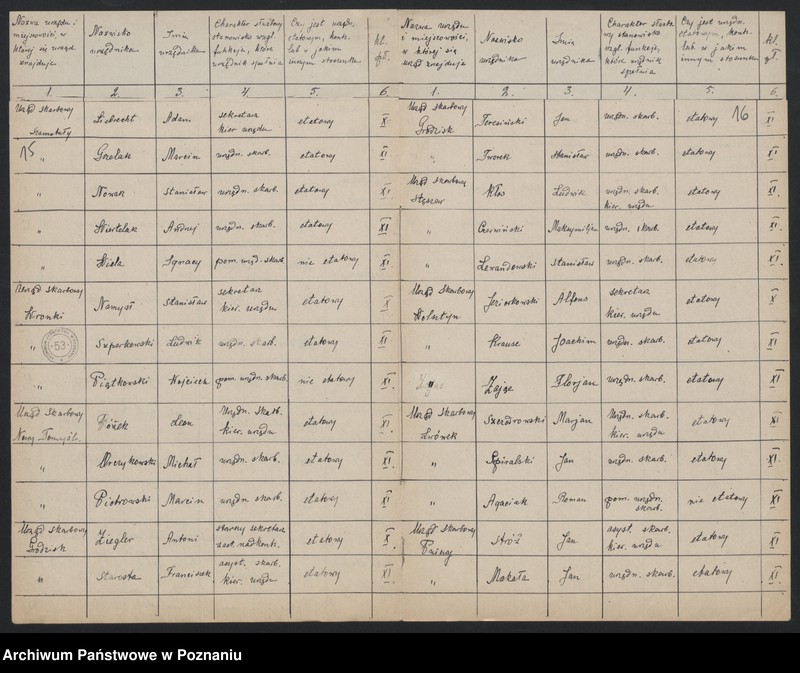 Nazwa urzędu i miejscowości, w której się urząd znajduje
Nazwisko urzędnika
Imię urzędnika
Charakter służbowy stanowisko wzgl. funkcje, które urzędnik spełnia
Czy jest urzędn. etatowym, kontr. lub w jakim innym stosunku
kl. upł.
1. 2. 3. 4. 5. 6.
Urząd Skarbowy Szamotuły Liebrecht Adam sekretarz kier. urzędu etatowy X
15 " Grelak Marcin urzędn. skarb. etatowy XI
" Nowak Stanisław urzędn. skarb. etatowy XI
" Andrzej urzędn. skarb. etatowy XI
" Ignacy pom. urzęd. skarb. nie etatowy XI.
Urząd Skarbowy Wronki Namysł Stanisław sekretarz kier. urzędu etatowy X
" 53 Szparkowski Ludwik urzędn. skarb. etatowy XI
" Piątkowski Wojciech pom. urzędn. skarb. nie etatowy XI.
Urząd Skarbowy Nowy Tomyśl Leon Urzędn. Skarb. kier. urzędu etatowy XI
" Michał urzędn. skarb. etatowy XI.
" Piotrowski Marcin urzędn. skarb. etatowy XI
Urząd Skarbowy Grodzisk Ziegler Antoni starszy sekretarz etatowy X.
" Starosta Franciszek asyst. skarb. kier. urzędu etatowy XI
Nazwa urzędu i miejscowości, w której się urząd znajduje
Nazwisko urzędnika
Imię urzędnika
Charakter służbowy stanowisko wzgl. funkcje, które urzędnik spełnia
Czy jest urzędn. etatowym, kontr. lub w jakim innym stosunku
kl. upł.
1. 2. 3. 4. 5. 6.
Urząd Skarbowy Grodzisk Teresiński Jan urzędn. skarb. etatowy 16 XI
" Tworek Stanisław urzędn. skarb. etatowy XI
Urząd Skarbowy Stęszew Kłos Ludwik urzędn. skarb. kier. urzędu etatowy XI
" Czerwiński Maksymiljan urzędn. skarb. etatowy XI
" Lewandowski Stanisław urzędn. skarb. etatowy XI.
Urząd Skarbowy Wolsztyn Jeziorkowski Alfons sekretarz kier. urzędu etatowy X
" Krause Joachim urzędn. skarb. etatowy XI
" Zając Florjan urzędn. skarb. etatowy XI
Urząd Skarbowy Lwówek Szczodrowski Marjan Urzędn. skarb. kier. urzędu etatowy XI
" Spiralski Jan urzędn. skarb. etatowy XI.
" Agaciak Roman pom. urzędn. skarb. nie etatowy XI
Urząd Skarbowy Pniewy Stróż Jan asyst. skarb. kier. urzędu etatowy XI
" Makała Jan urzędn. skarb. etatowy XI
Archiwum Państwowe w Poznaniu